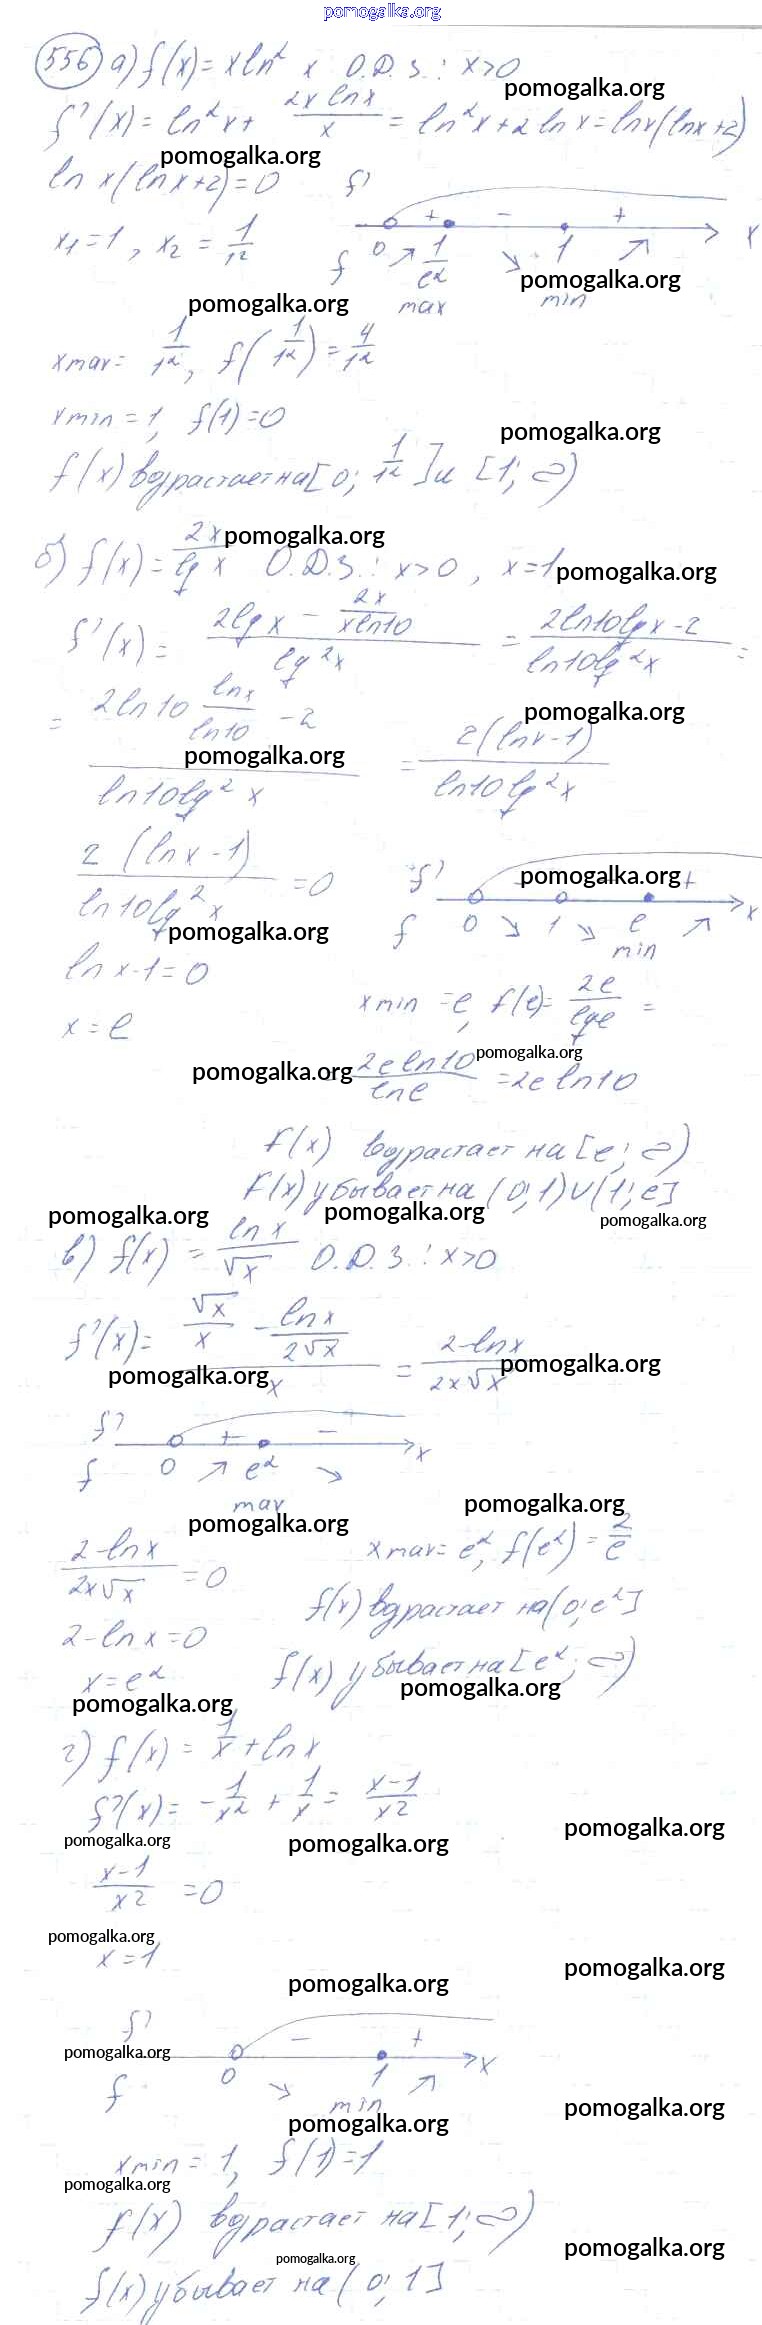 pomogalka.org
556 а) f(x) = x ln² x О.Д.З.: x>0
pomogalka.org
f'(x) = ln² x + 2x ln x / x = ln² x + 2 ln x = ln x (ln x + 2)
pomogalka.org
ln x (ln x + 2) = 0 f'
+ - +
x₁ = 1, x₂ = 1/1² 0 1/e² 1 x
f
pomogalka.org
max min
pomogalka.org
x max = 1/1², f(1/1²) = 4/1²
x min = 1, f(1) = 0
pomogalka.org
f(x) возрастает на [0; 1/1²] и [1; ∞)
pomogalka.org
б) f(x) = 2x / lg x О.Д.З.: x>0, x=1
pomogalka.org
f'(x) = (2lg x - 2x / x ln10) / lg² x = (2 ln10 lg x - 2) / ln10 lg² x =
pomogalka.org
= (2 ln 10 ln x / ln 10 - 2) / ln10 lg² x = 2(ln x - 1) / ln10 lg² x
pomogalka.org
2 (ln x - 1) / ln10 lg² x = 0 f' +
pomogalka.org
f 0 1 e x
min
pomogalka.org
ln x - 1 = 0
x min = e, f(e) = 2e / lg e =
x = e
pomogalka.org
2e ln10 / ln e = 2e ln10
pomogalka.org
f(x) возрастает на [e; ∞)
f(x) убывает на (0; 1) ∪ (1; e]
pomogalka.org
pomogalka.org
pomogalka.org
в) f(x) = ln x / √x О.Д.З.: x>0
f'(x) = (√x / x - ln x / 2√x) / x = 2 - ln x / 2x√x
pomogalka.org
pomogalka.org
f' + -
f 0 e² x
max
pomogalka.org
pomogalka.org
2 - ln x / 2x√x = 0 x max = e², f(e²) = 2/e
f(x) возрастает на (0; e²]
2 - ln x = 0
x = e² f(x) убывает на [e²; ∞)
pomogalka.org
pomogalka.org
г) f(x) = 1/x + ln x
f'(x) = - 1/x² + 1/x = x - 1 / x²
pomogalka.org
pomogalka.org
pomogalka.org
x - 1 / x² = 0
pomogalka.org
x = 1
pomogalka.org
pomogalka.org
f' - +
pomogalka.org
f 0 1 x
min
pomogalka.org
pomogalka.org
x min = 1, f(1) = 1
pomogalka.org
f(x) возрастает на [1; ∞)
pomogalka.org
pomogalka.org
f(x) убывает на (0; 1]